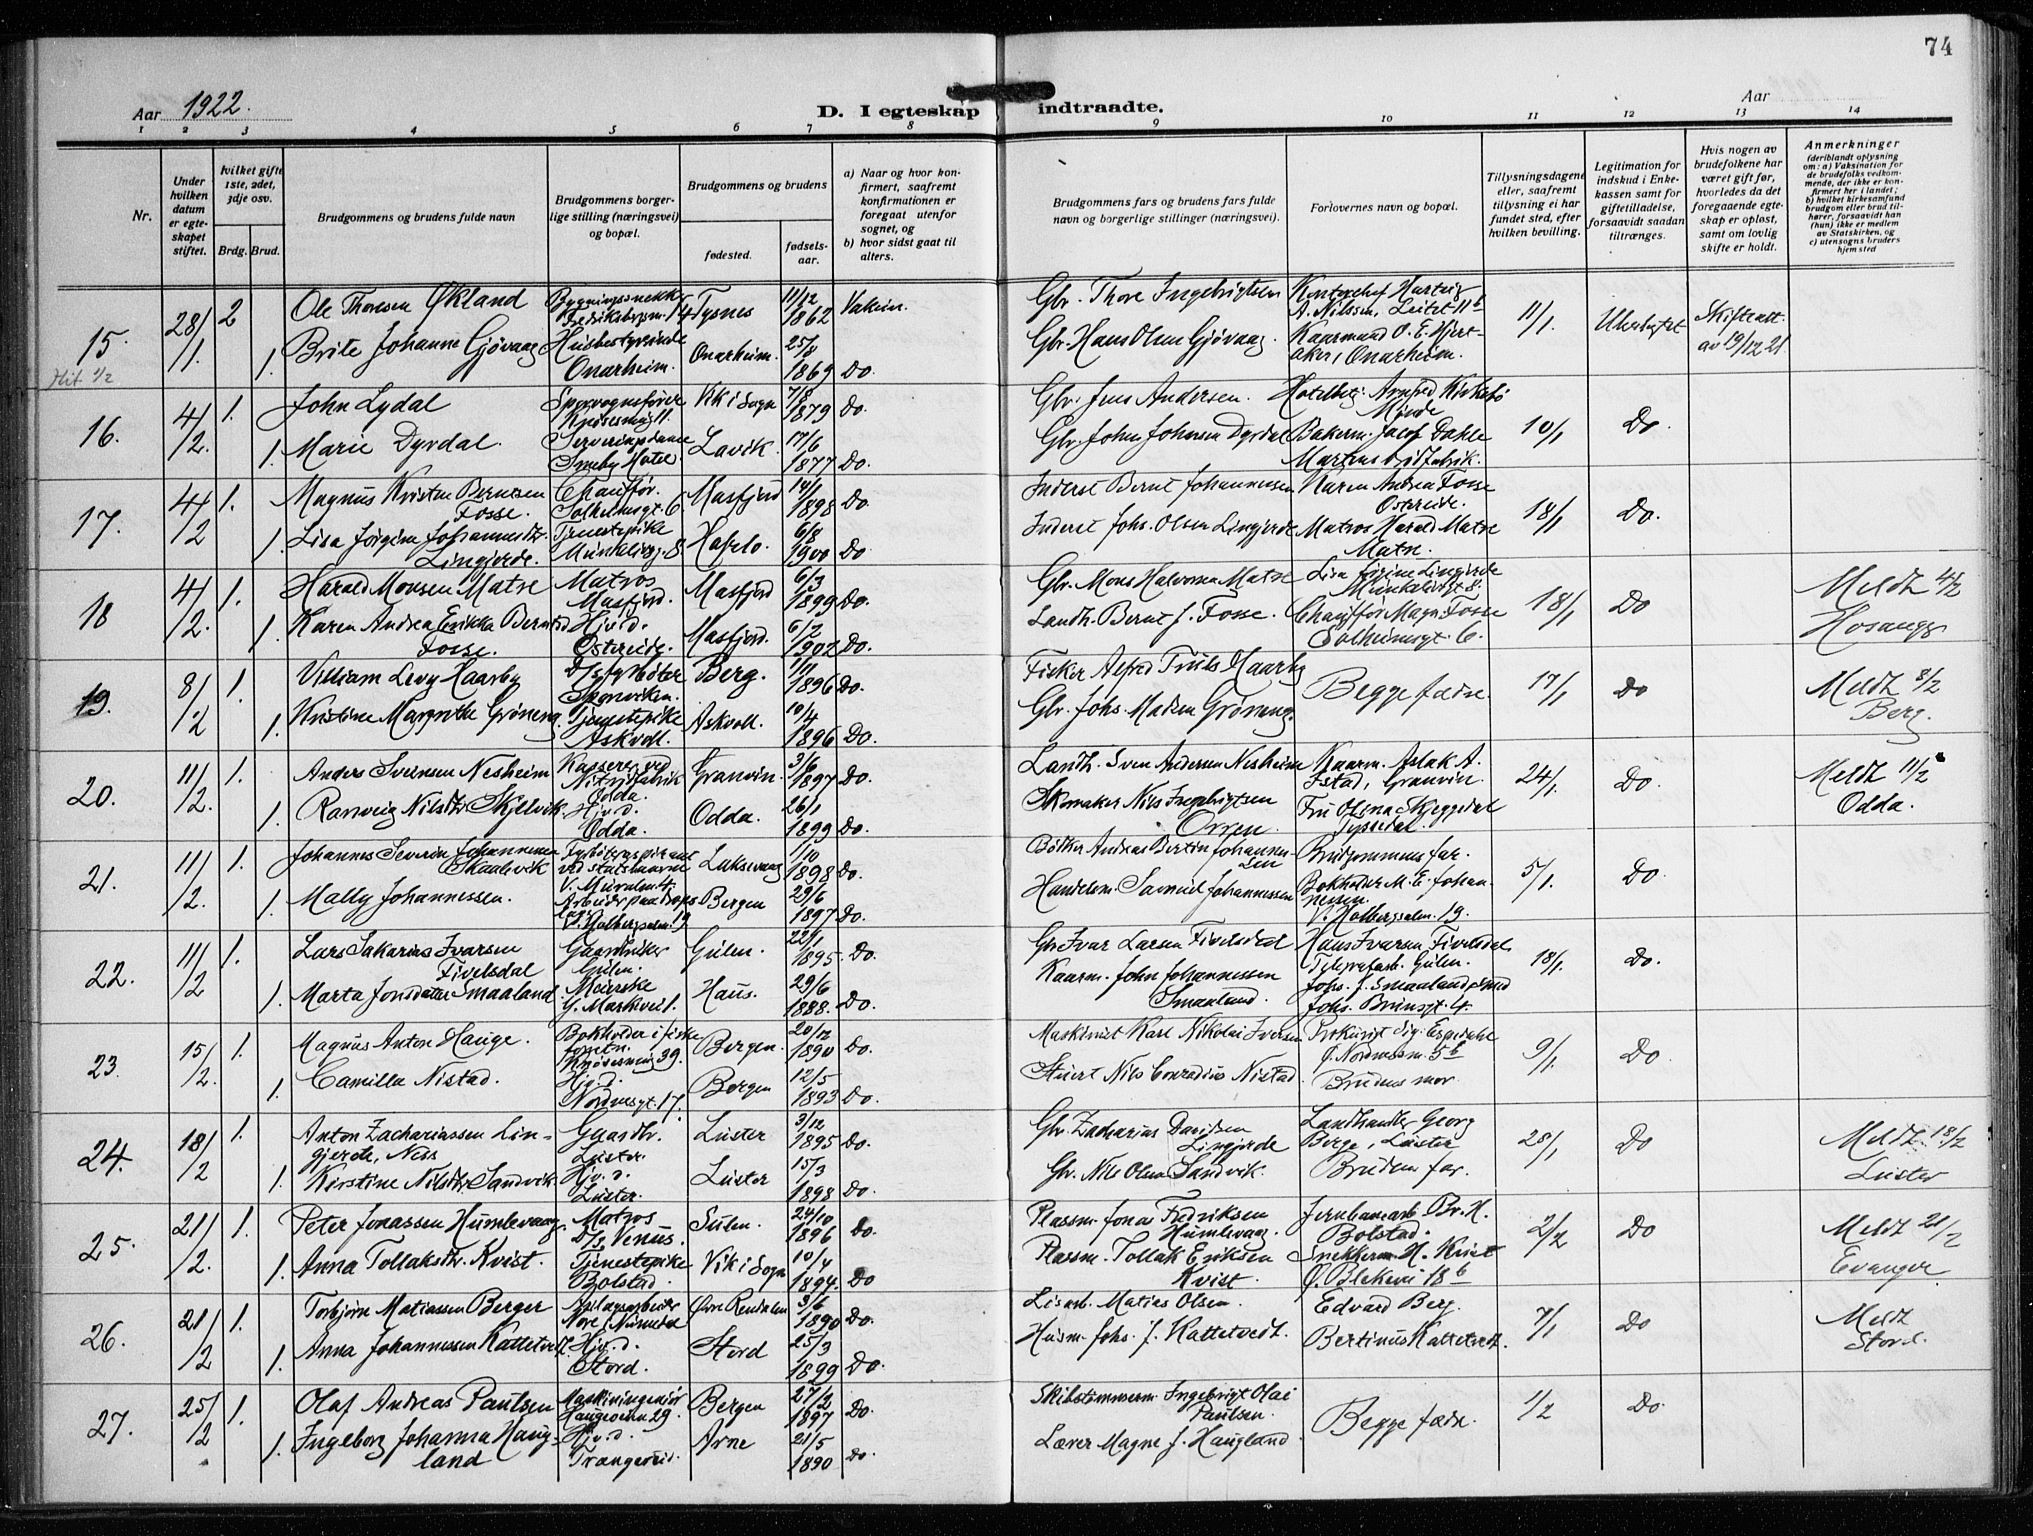 74
Aar 1922.
D. I egteskap indtraadte.
Aar
1 2 3 4 5 6 7 8 9 10 11 12 13 14
Nr.
Under hvilken datum er egteskapet stiftet.
hvilket gifte 1ste, 2det, 3dje osv.
Brdg. Brud.
Brudgommens og brudens fulde navn
Brudgommens borgerlige stilling (næringsvei) og bopæl.
Brudgommens og brudens
fødested.
fødselsaar.
a) Naar og hvor konfirmert, saafremt konfirmationen er foregaat utenfor sognet, og
b) hvor sidst gaat til alters.
Brudgommens fars og brudens fars fulde navn og borgerlige stillinger (næringsvei).
Forlovernes navn og bopæl.
Tillysningsdagene eller, saafremt tillysning ei har fundet sted, efter hvilken bevilling.
Legitimation for indskud i Enkekassen samt for giftetilladelse, forsaavidt saadan tiltrænges.
Hvis nogen av brudefolkene har været gift før, hvorledes da det foregaaende egteskap er opløst, samt om lovlig skifte er holdt.
Anmerkninger
(deriblandt oplysning om: a) Vaksination for de brudefolks vedkommende, der ikke er konfirmert her i landet; b) hvilket kirkesamfund brudgom eller brud tilhører, forsaavidt han (hun) ikke er medlem av Statskirken, og c) utensogns bruders hjemsted
15. 28/1. 2 Ole Thorsen Økland Tysnes 11/12 1862 Gbr. Thore Ingebrigtsen A. Nilssen, Leitet 11b 11/1. Skifteatt. av 19/12 21
1. Brite Johanne Gjøvaag Husbestyrerinde Onarheim. Onarheim. 25/8 1869 Do. Gbr. Hans Olsen Gjøvaag. Kaarmand O. E. Hjertaker, Onarheim.
16. 4/2. 1. John Lydal Sporvognsfører Vik i Sogn 7/8 1879 Do. Gbr. Jens Andersen. 10/1 Do
1. Marie Dyrdal. Lavik. 17/6 1877 Do. Gbr. Johan Johnsen Dyrdal Bakerm. Jacob Dahle
17. 4/2 1. Magnus Kristen Berntsen Fosse. Chauffør. Solheimsgt. 6 Masfjord 14/1 1898 Do Inderst Bernt Johannessen Karen Andrea Fosse Ostereide. 18/1 Do.
1. Lisa Jørgine Johannesdtr. Lingjerde. Tjenestepike Hafslo. 6/8 1900 Do Inderst Johs. Olsen Lingjerde Matros Harald Matre Matre.
18 4/2. 1. Harald Monsen Matre Matros Masfjord. Masfjord 6/3 1899 Do. Gbr. Mons Halvorsen Matre Lisa Jørgine Lingjerde 18/1 Do Meldt 4/2 Hosanger
1. Karen Andrea Erikka Berntsd Fosse. Hjv. d. Ostereide. Masfjord. 6/2 1902 Do. Landh. Bernt J. Fosse. Chauffør Magn. Fosse Solheimsgt. 6.
19. 8/2 1. William Levy Haarby Berg. 1/11 1896 Do. Fisker Alfred Truls Haarby Begge fædre. 17/1 Do Meldt 8/2 Berg.
1. Kristine Margrethe Grøneng. Tjenestepike Askvoll. Askvoll. 10/4 1896 Do. Gbr. Johs. Madsen Grøneng.
20. 11/2. 1. Anders Svensen Nesheim Kasserer ved Nitridfabrik Odda. Granvin. 3/6 1897 Do. Landh. Sven Andersen Nesheim Kaarm. Aslak A. Istad, Granvin. 24/1. Do. Meldt 11/2 Odda.
1. Ranveig Nilsdtr. Skjelvik Hjv. d. Odda. Odda. 26/1 1899 Do. Skomaker Nils Ingebrigtsen Orren. Fru Olena Skjeggedal Tyssedal.
21. 11/2. 1. Johannes Severin Johannessen Skaalevik Laksevaag 1/10 1898 Do. Bødker Andreas Bertin Johannessen Brudgommens far. 5/1. Do.
1. Mally Johannessen. Bergen 29/6 1897 Do. Handelsm. Samuel Johannessen Bokholder M. E. Johannessen. V. Holbergsalm. 19.
22. 11/2 1. Lars Sakarias Ivarsen Fivelsdal Gaardbruker Gulen. Gulen. 22/1 1895. Do. Gbr. Ivar Larsen Fivelsdal Hans Ivarsen Fivelsdal Telegrafarb. Gulen. 18/1. Do.
1. Marta Jonsdatter Smaaland. Meierske Haus. 29/6 1888. Do. Kaarm. John Johannessen Smaaland. Johs. J. Smaaland Johs. Brunsgt. 4.
23. 15/2. 1. Magnus Anton Hauge. Bokholder i fiskeforretn. Bergen. 20/12 1890 Do. Maskinist Karl Nikolai Iversen 9/1. Do.
1. Camilla Nistad. Hjv. d. Nordnesgt. 17. Bergen 12/5 1893 Do. Stuert Nils Conradius Nistad. Brudens mor.
24. 18/2 1. Anton Zachariassen Lingjerde, Nes Gaardbr. Luster. Luster 3/12 1895 Do. Gbr. Zacharias Davidsen Lingjerde Landhandler Georg Berge, Luster 28/1 Do Meldt. 18/2 Luster
1. Kirstine Nilsdtr. Sandvik. Hjv. d. Luster. Luster 15/3 1898 Do. Gbr. Nils Olsen Sandvik. Brudens far.
25. 21/2. 1. Peter Jonassen Humlevaag Matros D/S. Venus. Sulen. 24/10 1896 Do. Plassm. Jonas Fredriksen Humlevaag. Jernbanearb. Br. H. Bolstad. 2/2 Do Meldt 21/2 Evanger
1. Anna Tollaksdtr. Kvist. Tjenestepike Bolstad. Vik i Sogn 10/4 1894. Do Plassm. Tollak Eriksen Kvist. Snekkerm. H. Kvist Ø. Blekevei 18b
26. 21/2 1. Torbjørn Matiassen Berger Anlægsarbeider Nore i Numedal Øvre Rendalen 3/6 1890 Do. Matias Olsen. Edvard Berg. 7/1 Do Meldt Stord.
1. Anna Johannessen Kattetvedt. Hjv. d. Stord. Stord 25/3 1899 Do. Husm. Johs. J. Kattetvedt. Bertinus Kattetvedt.
27. 25/2 1. Olaf Andreas Paulsen Maskiningeniør Haugeveien 29. Bergen 27/2 1897 Do. Skibstømmerm. Ingebrigt Olai Paulsen. Begge fædre. 1/2 Do.
1. Ingeborg Johanna Haugland Hjv. d. Trengereid. Arne 21/5 1890 Do. Lærer Magne J. Haugland.